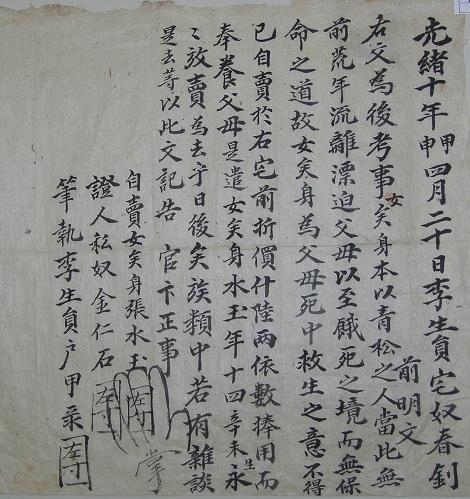 光緖十年甲申四月二十日李生員宅奴春釗
前明文
右文爲後考事女矣身本以靑松之人當此無
前荒年流離漂迫父母以至餓死之境而無保
命之道故女矣身爲父母死中救生之意不得
已自賣於右宅前折價什陸兩依數捧用而
奉養父母是遣女矣身水玉年十四辛未生永
〻放賣爲去乎日後矣族類中若有雜談
是去等以此文記告 官卞正事
自賣女矣身張水玉 右 掌
證人私奴金仁石 左寸
筆執李生員戶甲彔 左寸